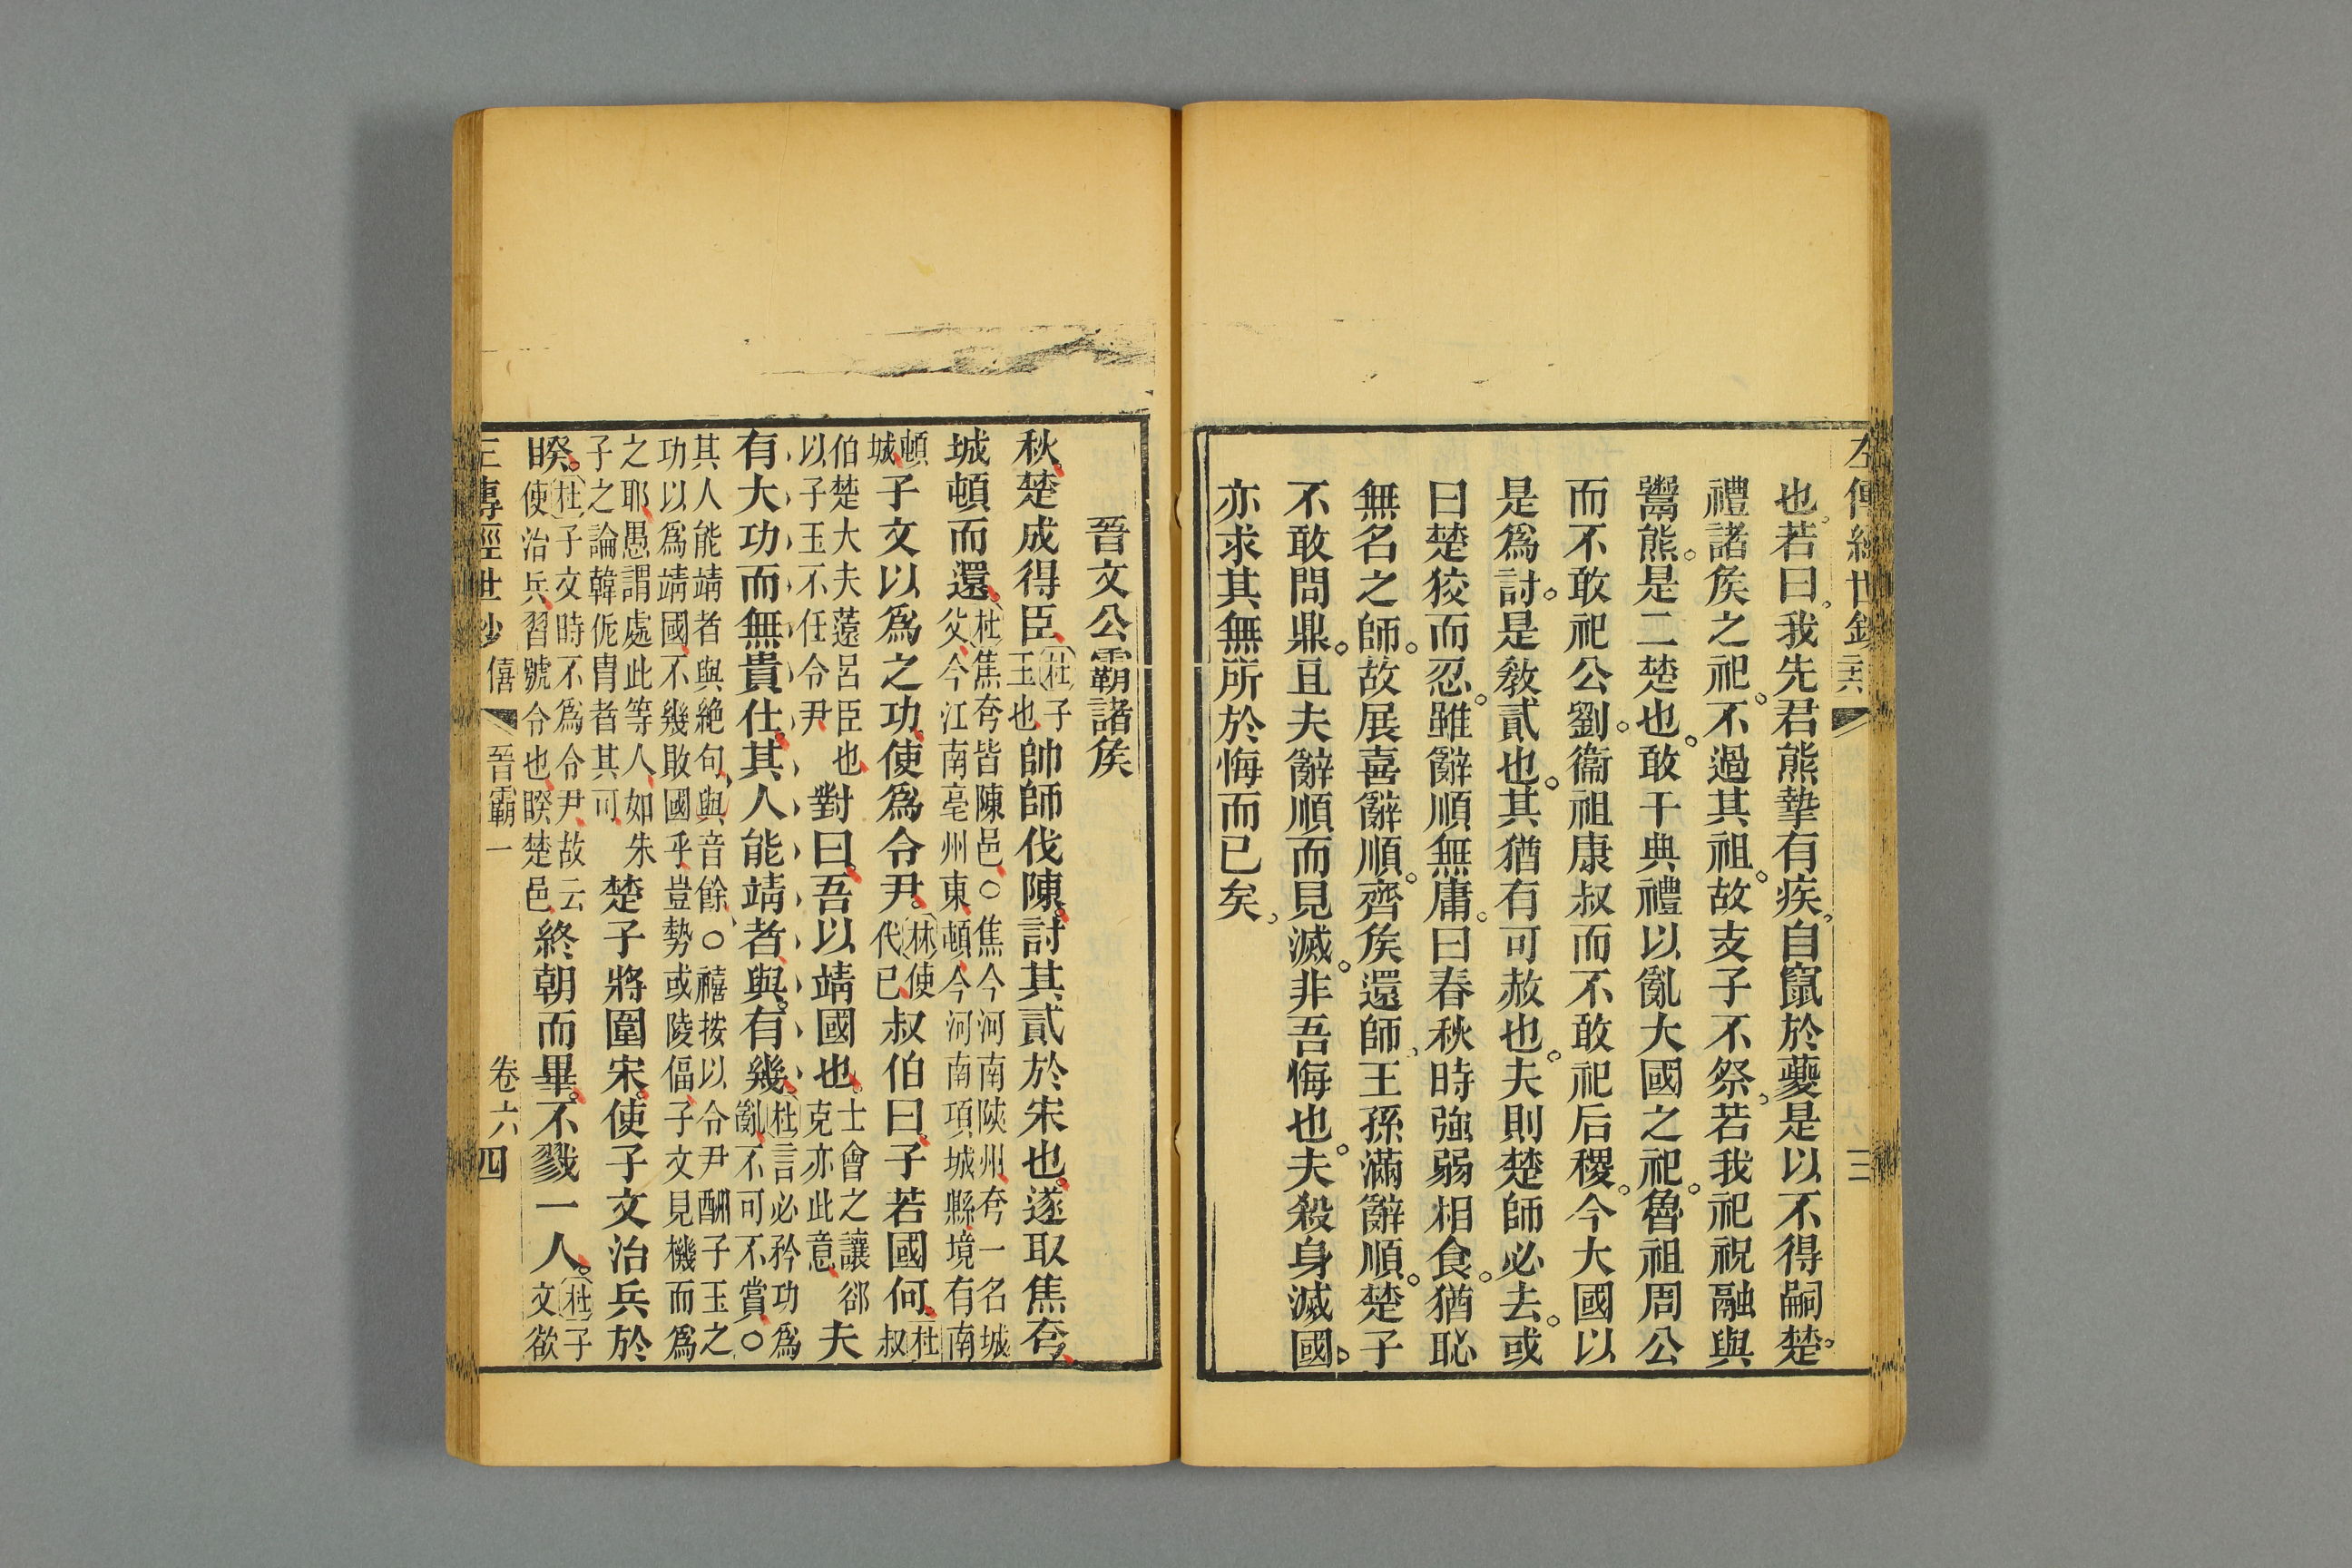 也。若曰。我先君熊摯有疾。自竄於夔是以不得嗣楚。
禮諸矦之祀。不過其祖。故支子不祭。若我祀祝融與
鬻熊。是二楚也。敢干典禮以亂大國之祀。魯祖周公
而不敢祀公劉。衞祖康叔而不敢祀后稷。今大國以
是爲討。是敎貳也。其猶有可赦也。夫則楚師必去。或
曰楚狡而忍。雖辭順無庸。曰春秋時強弱相食。猶恥
無名之師。故展喜辭順。齊矦還師。王孫滿辭順。楚子
不敢問鼎。且夫辭順而見滅。非吾悔也。夫殺身滅國。
亦求其無所於悔而已矣。
晉文公霸諸矦
秋。楚成得臣、
杜子
玉也
帥師伐陳。討其貳於宋也。遂取焦夸、
城頓而還。
杜焦夸皆陳邑。○焦今河南陝州、夸一名城
父、今江南亳州東、頓今河南項城縣、境有南
頓
城
子文以爲之功。使爲令尹。
林使
代已
叔伯曰。子若國何。
杜
叔
伯楚大夫薳呂臣也、
以子玉不任令尹
對曰。吾以靖國也。
士會之讓郤
克亦此意、
夫
有大功而無貴仕。其人能靖者、與。有幾、
杜言必矜功爲
亂、不可不賞、○
其人能靖者與絶句、與音餘、○禧按以令尹酬子玉之
功以爲靖國、不幾敗國乎、豈勢或陵偪、子文見機而爲
之耶、愚謂處此等人、如朱
子之論韓侂冑者其可
楚子將圍宋。使子文治兵於
睽。
杜子文時不爲令尹、故云
使治兵、習號令也、睽楚邑、
終朝而畢。不戮一人。
杜子
文欲
僖
晉霸一
卷六
四
三